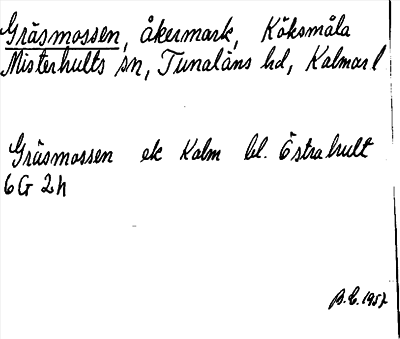 Gräsmossen, åkermark, Köksmåla
Misterhults sn, Tunaläns hd, Kalmar l
Gräsmossen ek Kalm bl. Östrahult
6G 2h
B.E. 1957